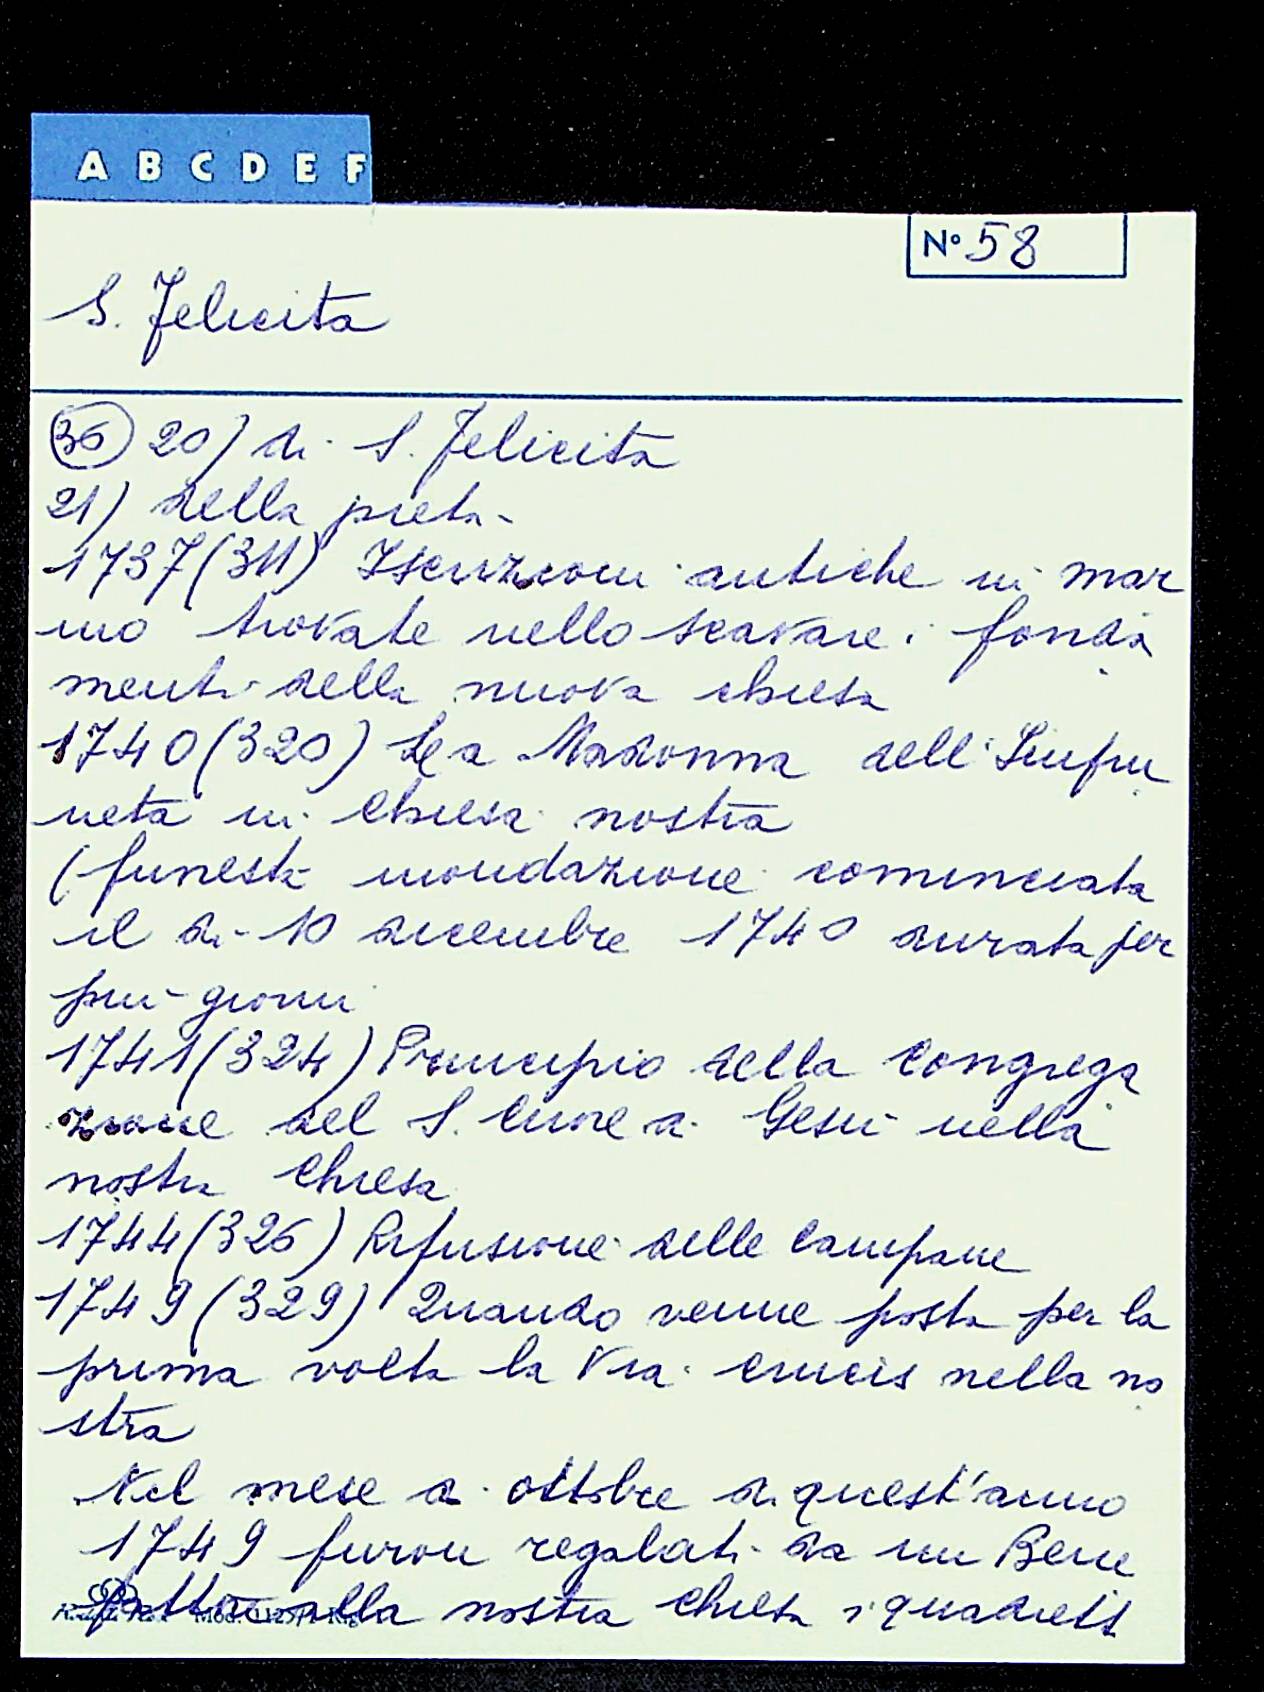 A B C D E F
N° 58
S. Felicita
36 20) di S. Felicita
21) della pietà
1737 (311) Iscrizioni antiche in mar
mo trovate nello scavare i fonda
menti della nuova chiesa
1740 (320) La Madonna dell'Impru
neta in Chiesa nostra
(funesta inondazione cominciata
il dì 10 dicembre 1740 durata per
più giorni
1741 (324) Principio della Congrega
zione del S. Cuore di Gesù nella
nostra Chiesa
1744 (326) Rifusione delle Campane
1749 (329) Quando venne posta per la
prima volta la Via Crucis nella no
stra
Nel mese di ottobre di quest'anno
1749 furon regalati da un Bene
fattore alla nostra Chiesa i quadretti